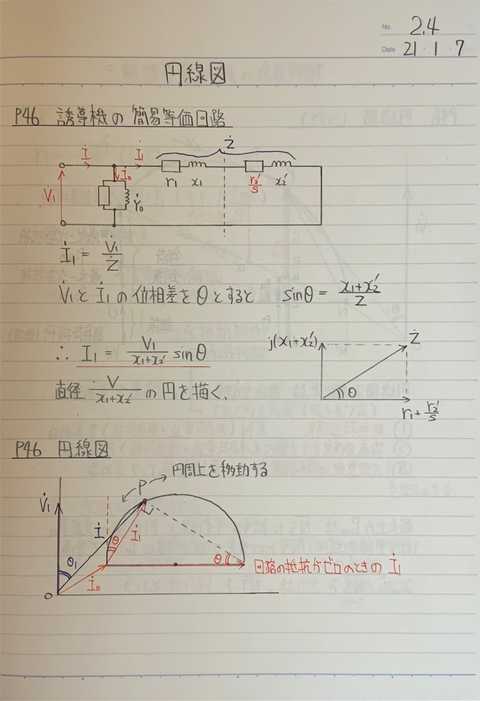 No. 2.4
Date 21・1・7
円線図
P46 誘導機の簡易等価回路
İ İ₁ Ż
V̇₁ İ₀ Ẏ₀ r₁ x₁ r₂'/s x₂'
İ₁ = V̇₁/Ż
V̇₁とİ₁の位相差をθとすると sinθ = x₁+x₂'/Z
∴ I₁ = V₁/x₁+x₂' sinθ
j(x₁+x₂') Ż
直径 V/x₁+x₂' の円を描く、
θ
r₁+r₂'/s
P46 円線図
P 円周上を移動する
V̇₁ İ İ₁
θ₁ θ θ
İ₀ 回路の抵抗分ゼロのときのİ₁
O